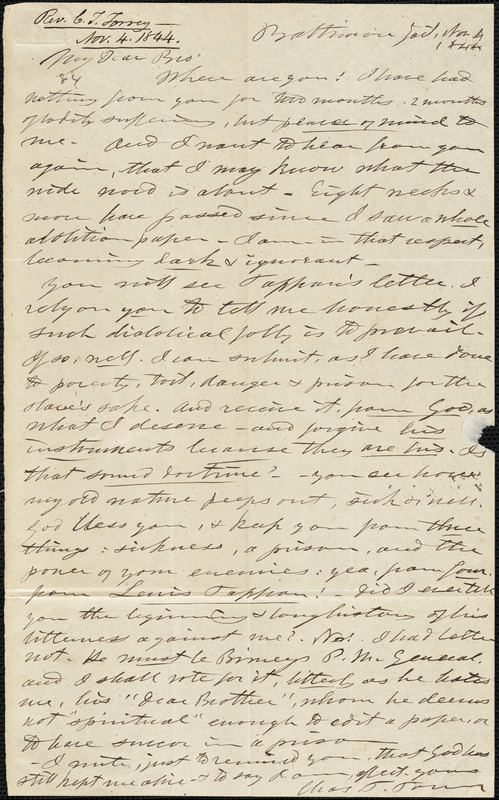 Rev. C. T. Torrey—
Nov. 4. 1844.
Baltimore Jail, Nov 4
1844
My Dear Bro!
84
Where are you? I have had
nothing from you for two months. 2 months
of bodily suffering, but peace of mind to
me. And I want to hear from you
again, that I may know what the
wide world is about - Eight weeks &
more have passed since I saw a whole
abolition paper - I am - in that respect,
becoming dark & ignorant -
You will see Tappan's letter. I
rely on you to tell me honestly if
such diabolical folly is to prevail.
If so, well. I can submit, as I have done
to poverty, toil, danger & prison for the
slave's sake. And receive it, from God, as
what I deserve - and forgive his
instruments because they are his. Is
that sound doctrine? - you see how
my old nature peeps out, sick or well.
God bless you, & keep you from three
things: sickness, a prison, and the
power of your enemies: yea, from four
from Lewis Tappan! - Did I ever tell
you the beginning & long history of his
bitterness against me? No! I had better
not. He must be Birney's P. M. General.
and I shall vote for it, bitterly as he hates
me, his "Dear Brother", whom he deems
not spiritual" enough to edit a paper, or
to have succor in a prison
- I write, just to remind you, that God has
still kept me alive - & to say I am, affect. yours
Chas T. Torrey